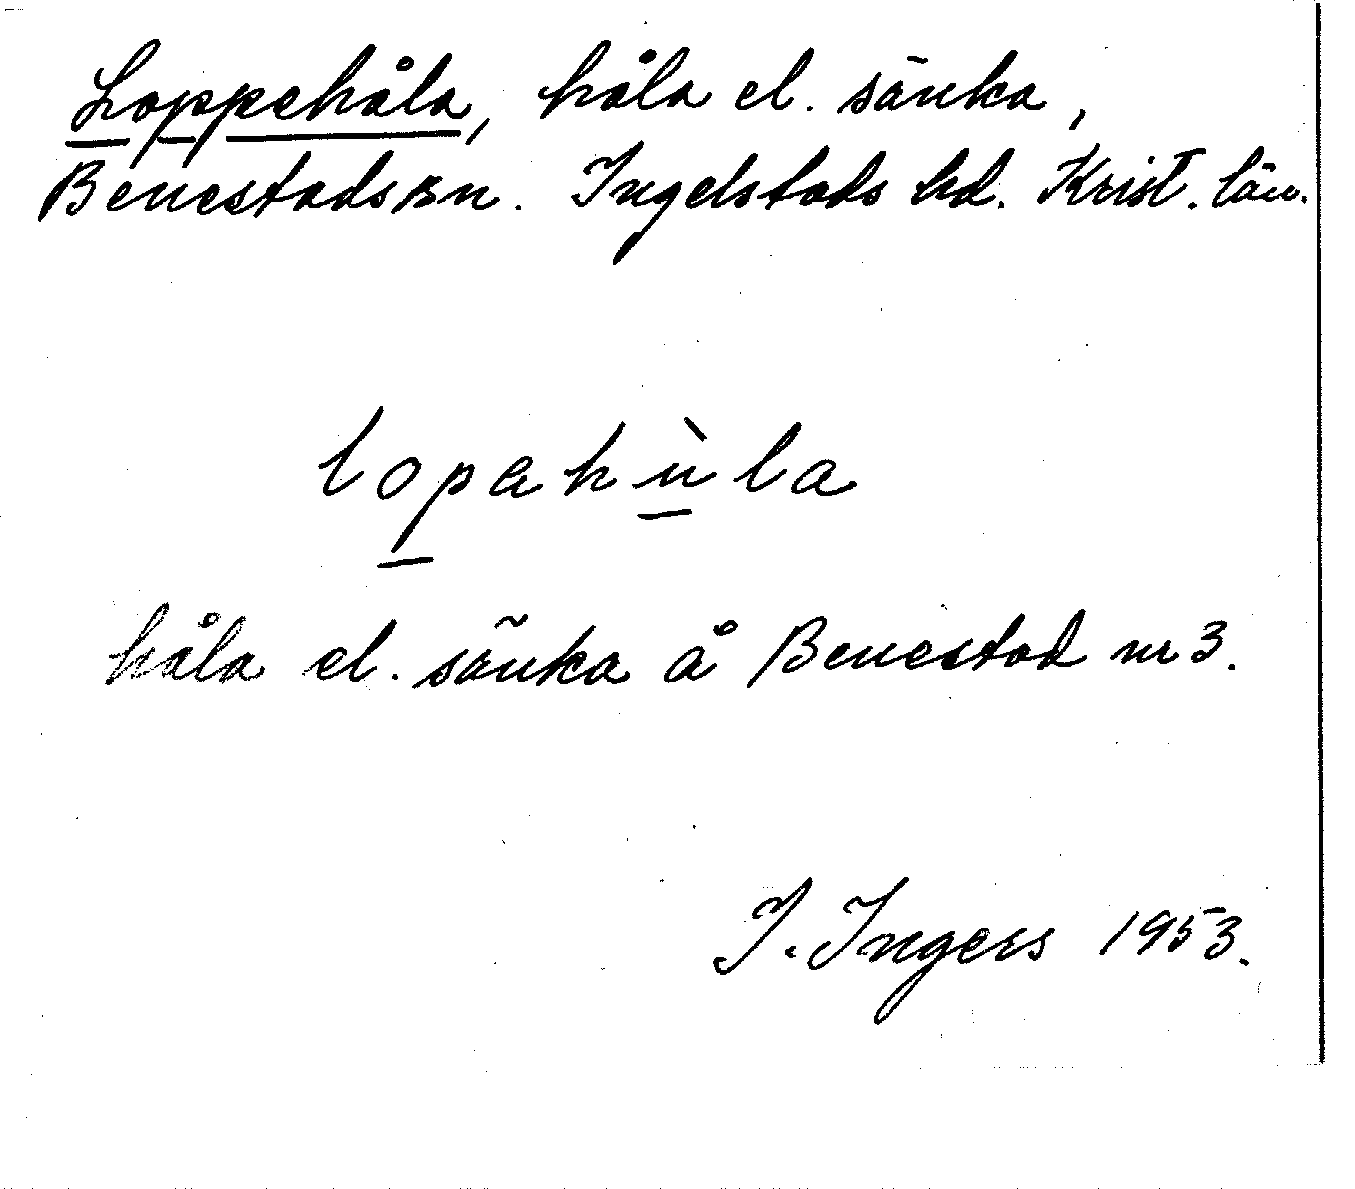 Loppehåla, håla el. sänka,
Benestads sn. Ingelstads hd. Krist. län.
lopahùla
håla el. sänka å Benestad nr 3.
I. Ingers 1953.